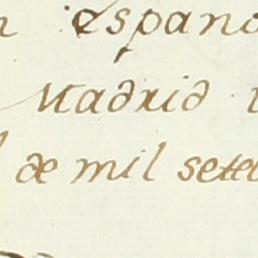 españo
Madrid
de mil sete